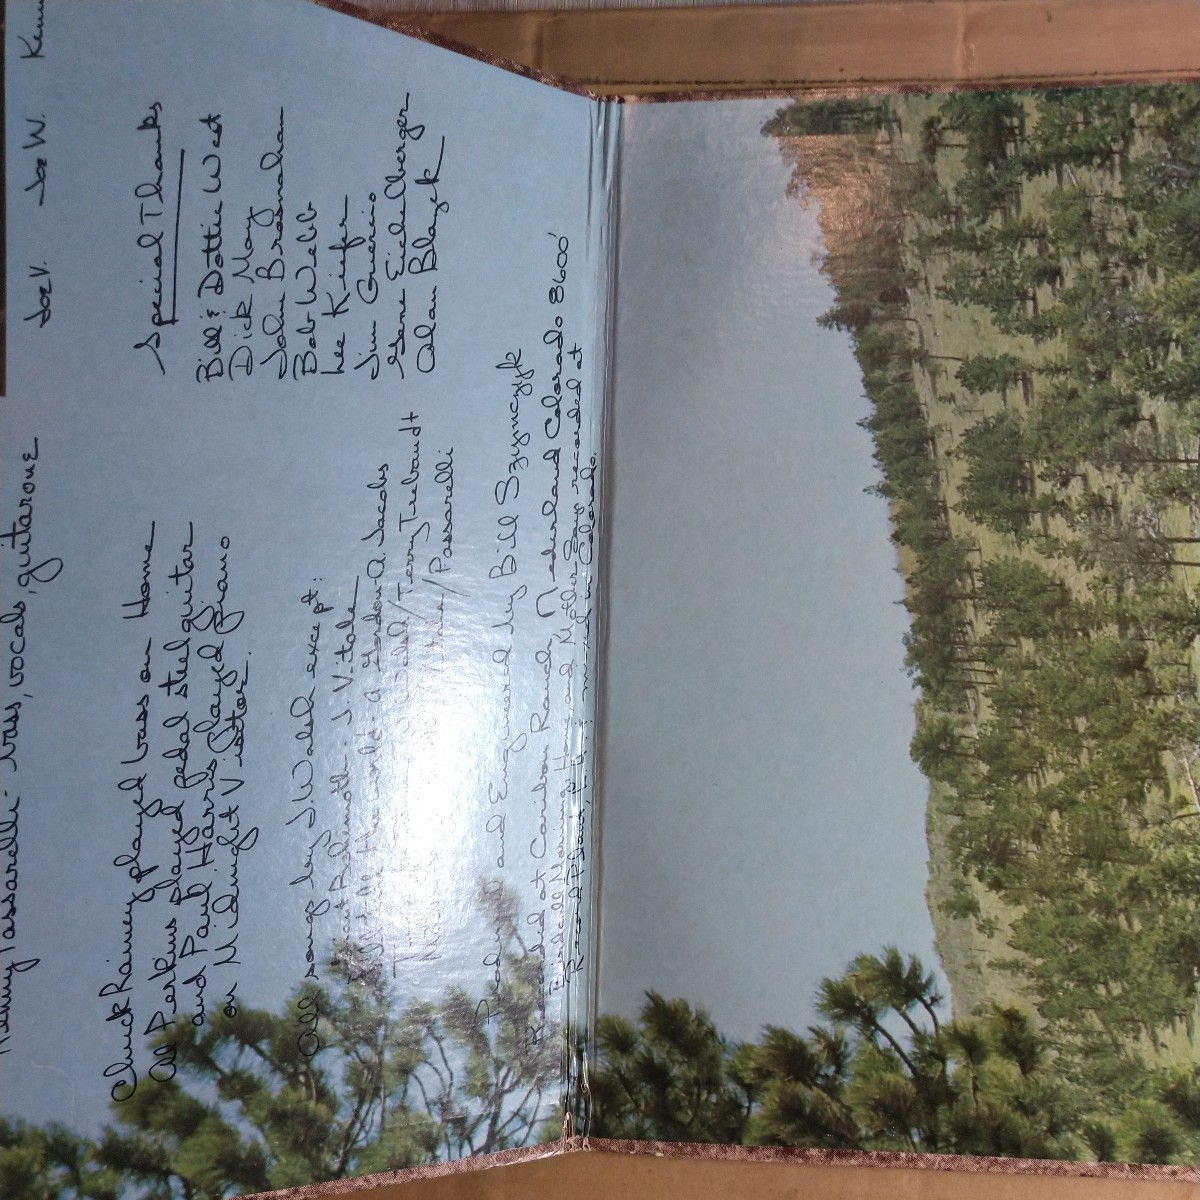 Joe V. Joe W.
Kenny Passarelli - bass, vocals, guitarone
Chuck Rainey played bass on Home
Al Perkins played pedal steel guitar
and Paul Harris played piano
on Midnight Visitor.
Special Thanks
Bill & Dottie West
Dick May
John Brasnahan
Bob Webb
Lee Kiefer
Jim Guercio
Gene Eichelberger
Alan Blazek
All songs by J. Walsh except:
Behemoth - J. Vitale
the world - a Gordon-A. Jacobs
Walsh/Terry Trebandt
Vitale/Passarelli
Produced and Engineered by Bill Szymczyk
Recorded at Caribou Ranch, Nederland Colorado 8600'
Mother Says recorded at
Record Plant, mixed in Colorado.